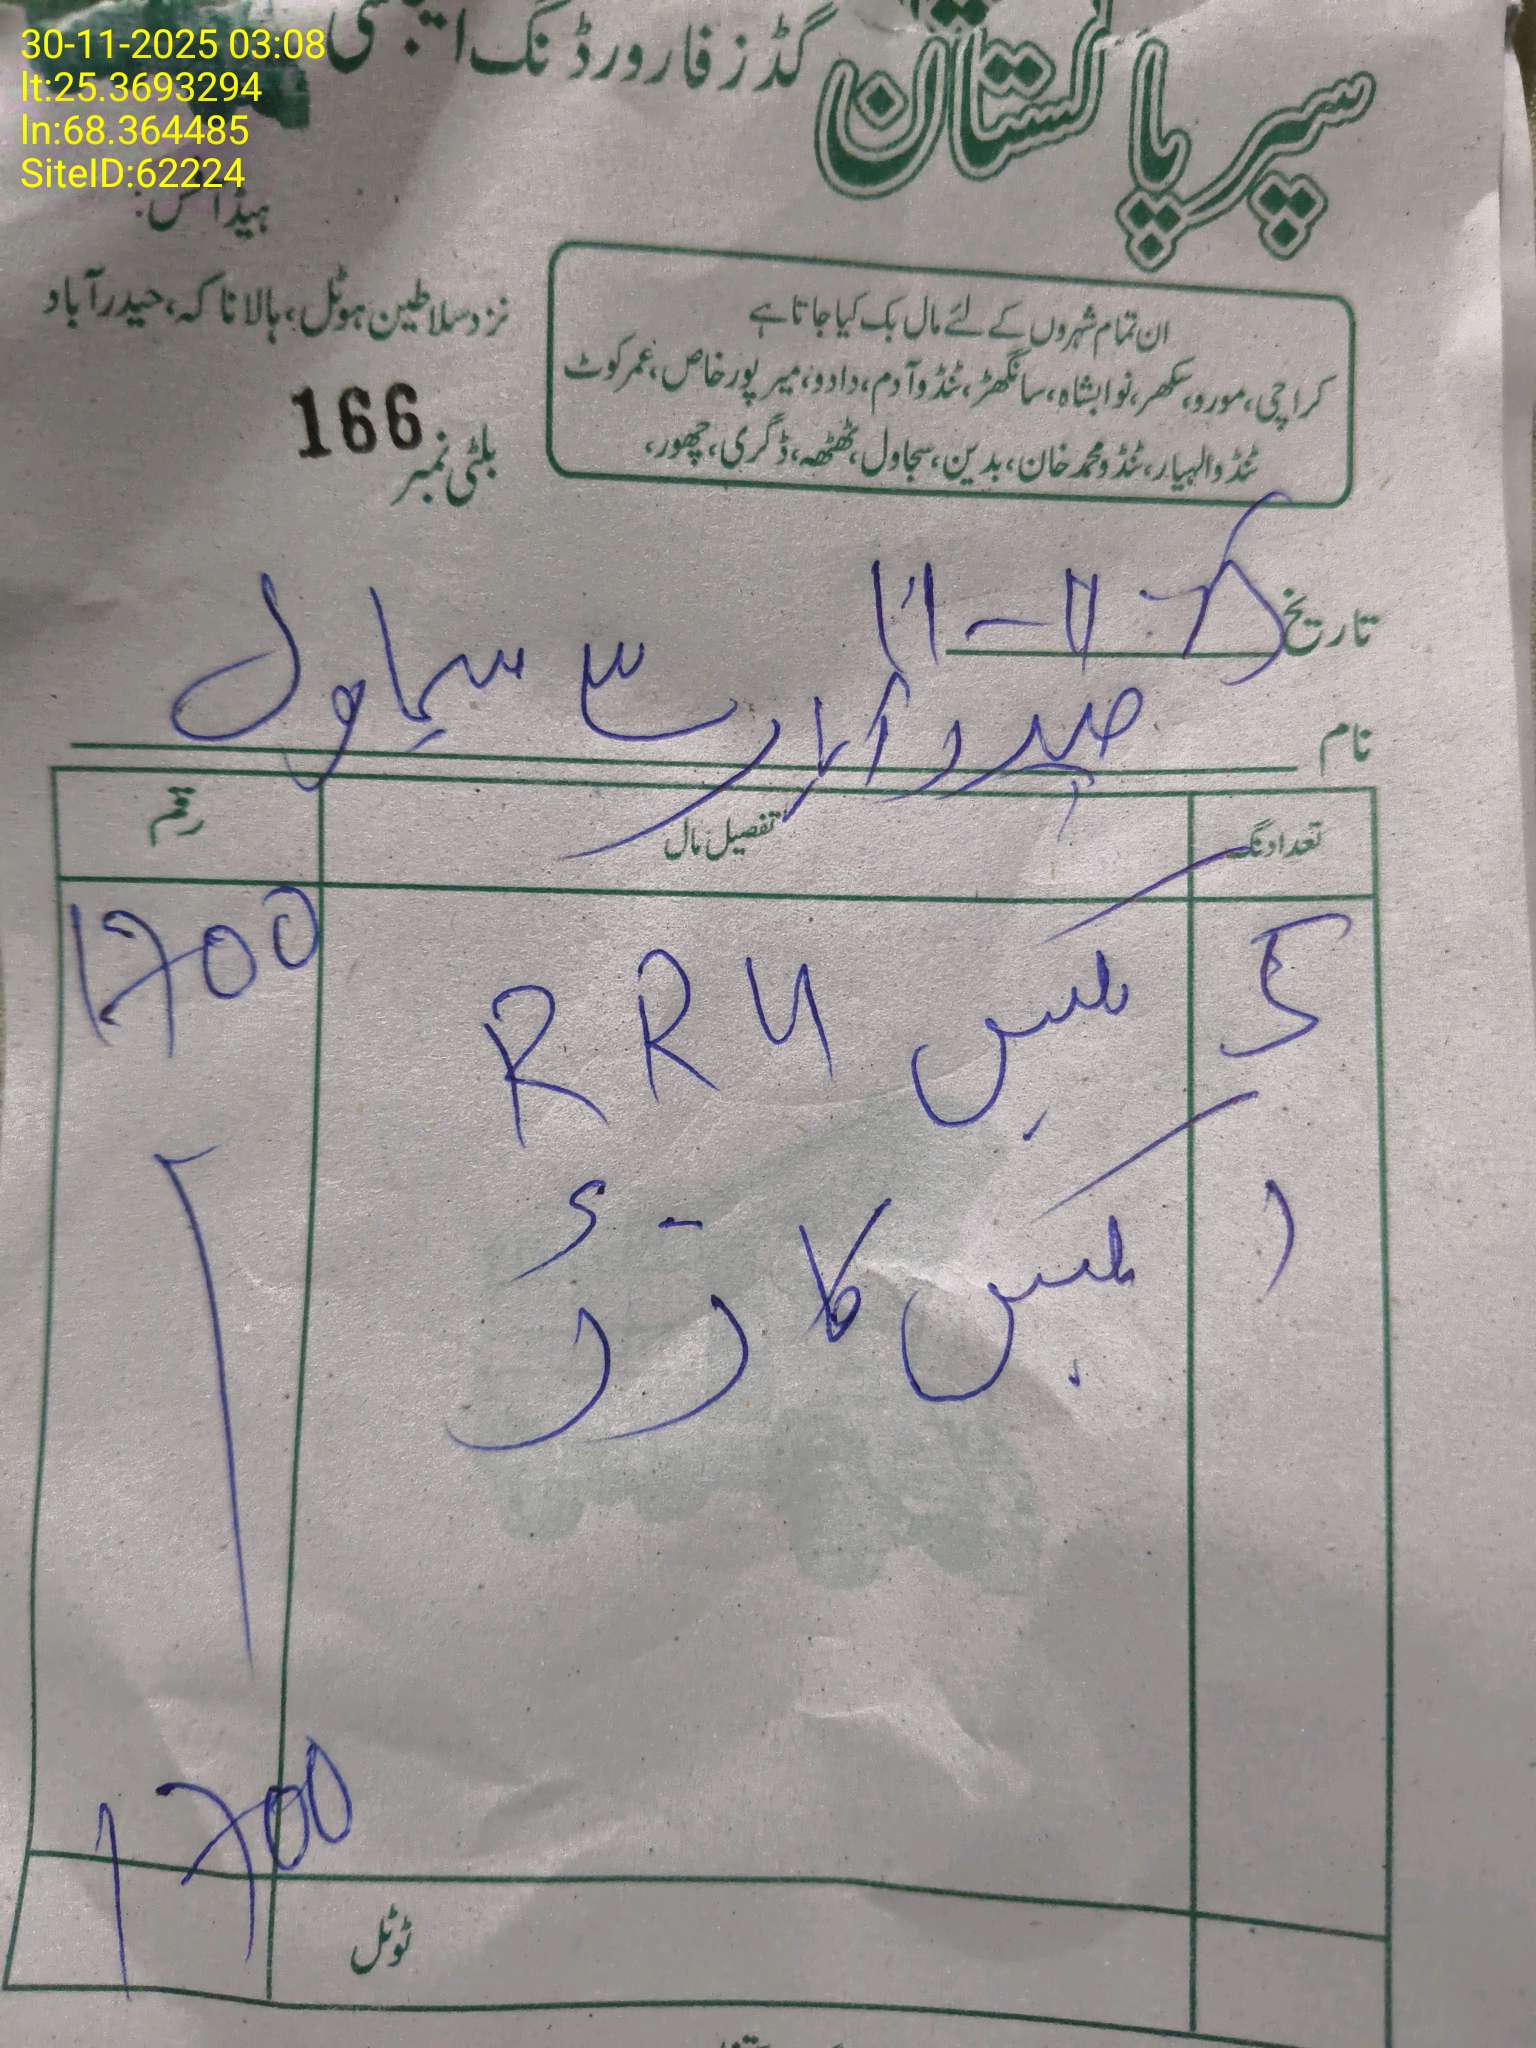 30-11-2025 03:08
lt:25.3693294
ln:68.364485
SiteID:62224
سپر پاکستان گڈز فارورڈنگ ایجنسی
ہیڈ آفس:
نزد سلاطین ہوٹل، ہالا ناکہ، حیدرآباد
ان تمام شہروں کے لئے مال بک کیا جاتا ہے
کراچی، مورو، سکھر، نوابشاہ، سانگھڑ، ٹنڈوآدم، دادو، میرپورخاص، عمرکوٹ
ٹنڈوالہیار، ٹنڈومحمدخان، بدین، سجاول، ٹھٹھہ، ڈگری، چھور،
بلٹی نمبر 166
تاریخ
نام حیدرآباد سے سجاول
تعداد نگ تفصیل مال رقم
5 بکس RRU 1700
1 بکس کا
1700
ٹوٹل